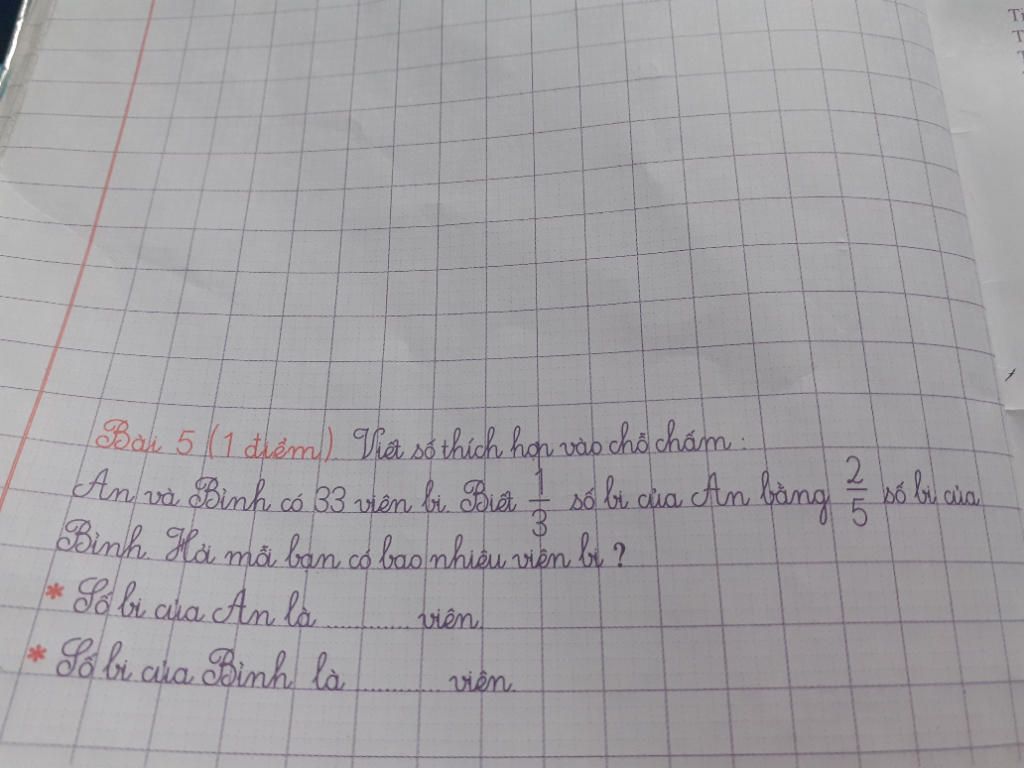 Bài 5 (1 điểm). Viết số thích hợp vào chỗ chấm:
An và Bình có 33 viên bi. Biết 1/3 số bi của An bằng 2/5 số bi của
Bình. Hỏi mỗi bạn có bao nhiêu viên bi?
* Số bi của An là .......... viên
* Số bi của Bình là .......... viên.